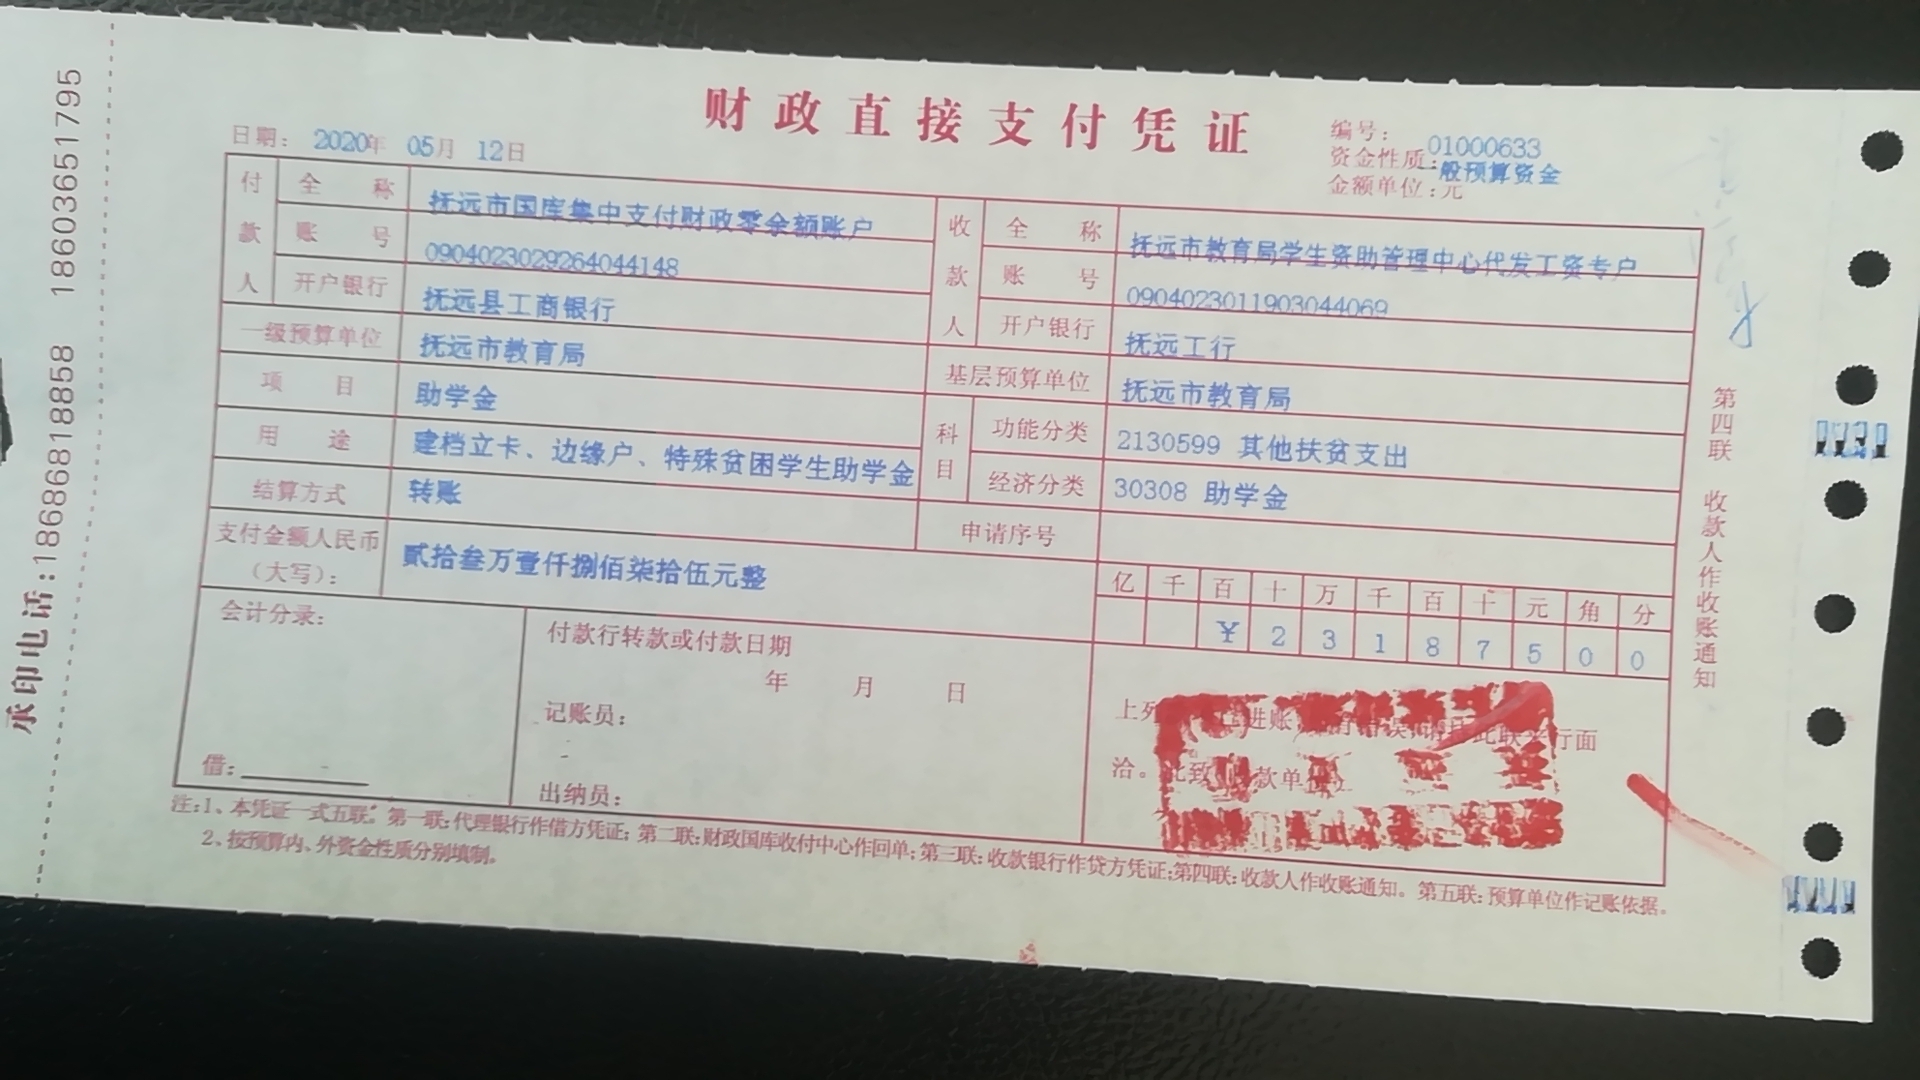 财政直接支付凭证
日期： 2020年 05月 12日
编号： 01000633
资金性质：一般预算资金
金额单位：元
付款人
全称 抚远市国库集中支付财政零余额账户
账号 0904023029264044148
开户银行 抚远县工商银行
收款人
全称 抚远市教育局学生资助管理中心代发工资专户
账号 0904023011903044069
开户银行 抚远工行
一级预算单位 抚远市教育局
基层预算单位 抚远市教育局
项目 助学金
用途 建档立卡、边缘户、特殊贫困学生助学金
科目
功能分类 2130599 其他扶贫支出
经济分类 30308 助学金
结算方式 转账
申请序号
支付金额人民币
（大写）：
贰拾叁万壹仟捌佰柒拾伍元整
亿 千 百 十 万 千 百 十 元 角 分
¥ 2 3 1 8 7 5 0 0
会计分录：
借：
付款行转款或付款日期
年 月 日
记账员：
出纳员：
上列 进账 此联 行面
洽。 此致 款单位
注：1、本凭证一式五联。第一联：代理银行作借方凭证；第二联：财政国库收付中心作回单；第三联：收款银行作贷方凭证；第四联：收款人作收账通知。第五联：预算单位作记账依据。
2、按预算内、外资金性质分别填制。
第四联 收款人作收账通知
承印电话：18686818858 18603651795